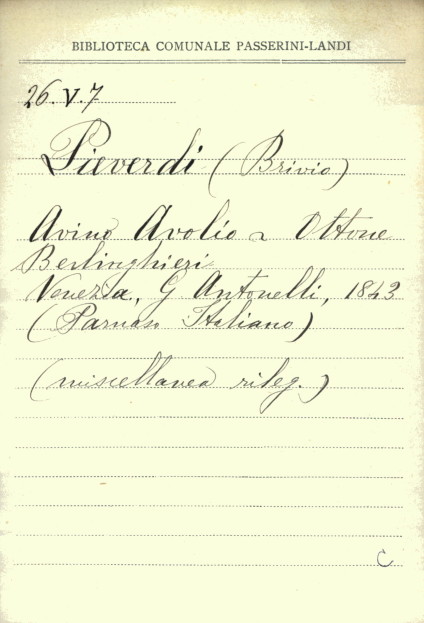 BIBLIOTECA COMUNALE PASSERINI-LANDI
26.V.7
Pieverdi (Brivio)
Avino Avolio e Ottone
Berlinghieri
Venezia, G Antonelli, 1843
(Parnaso Italiano)
(miscellanea rileg.)
C